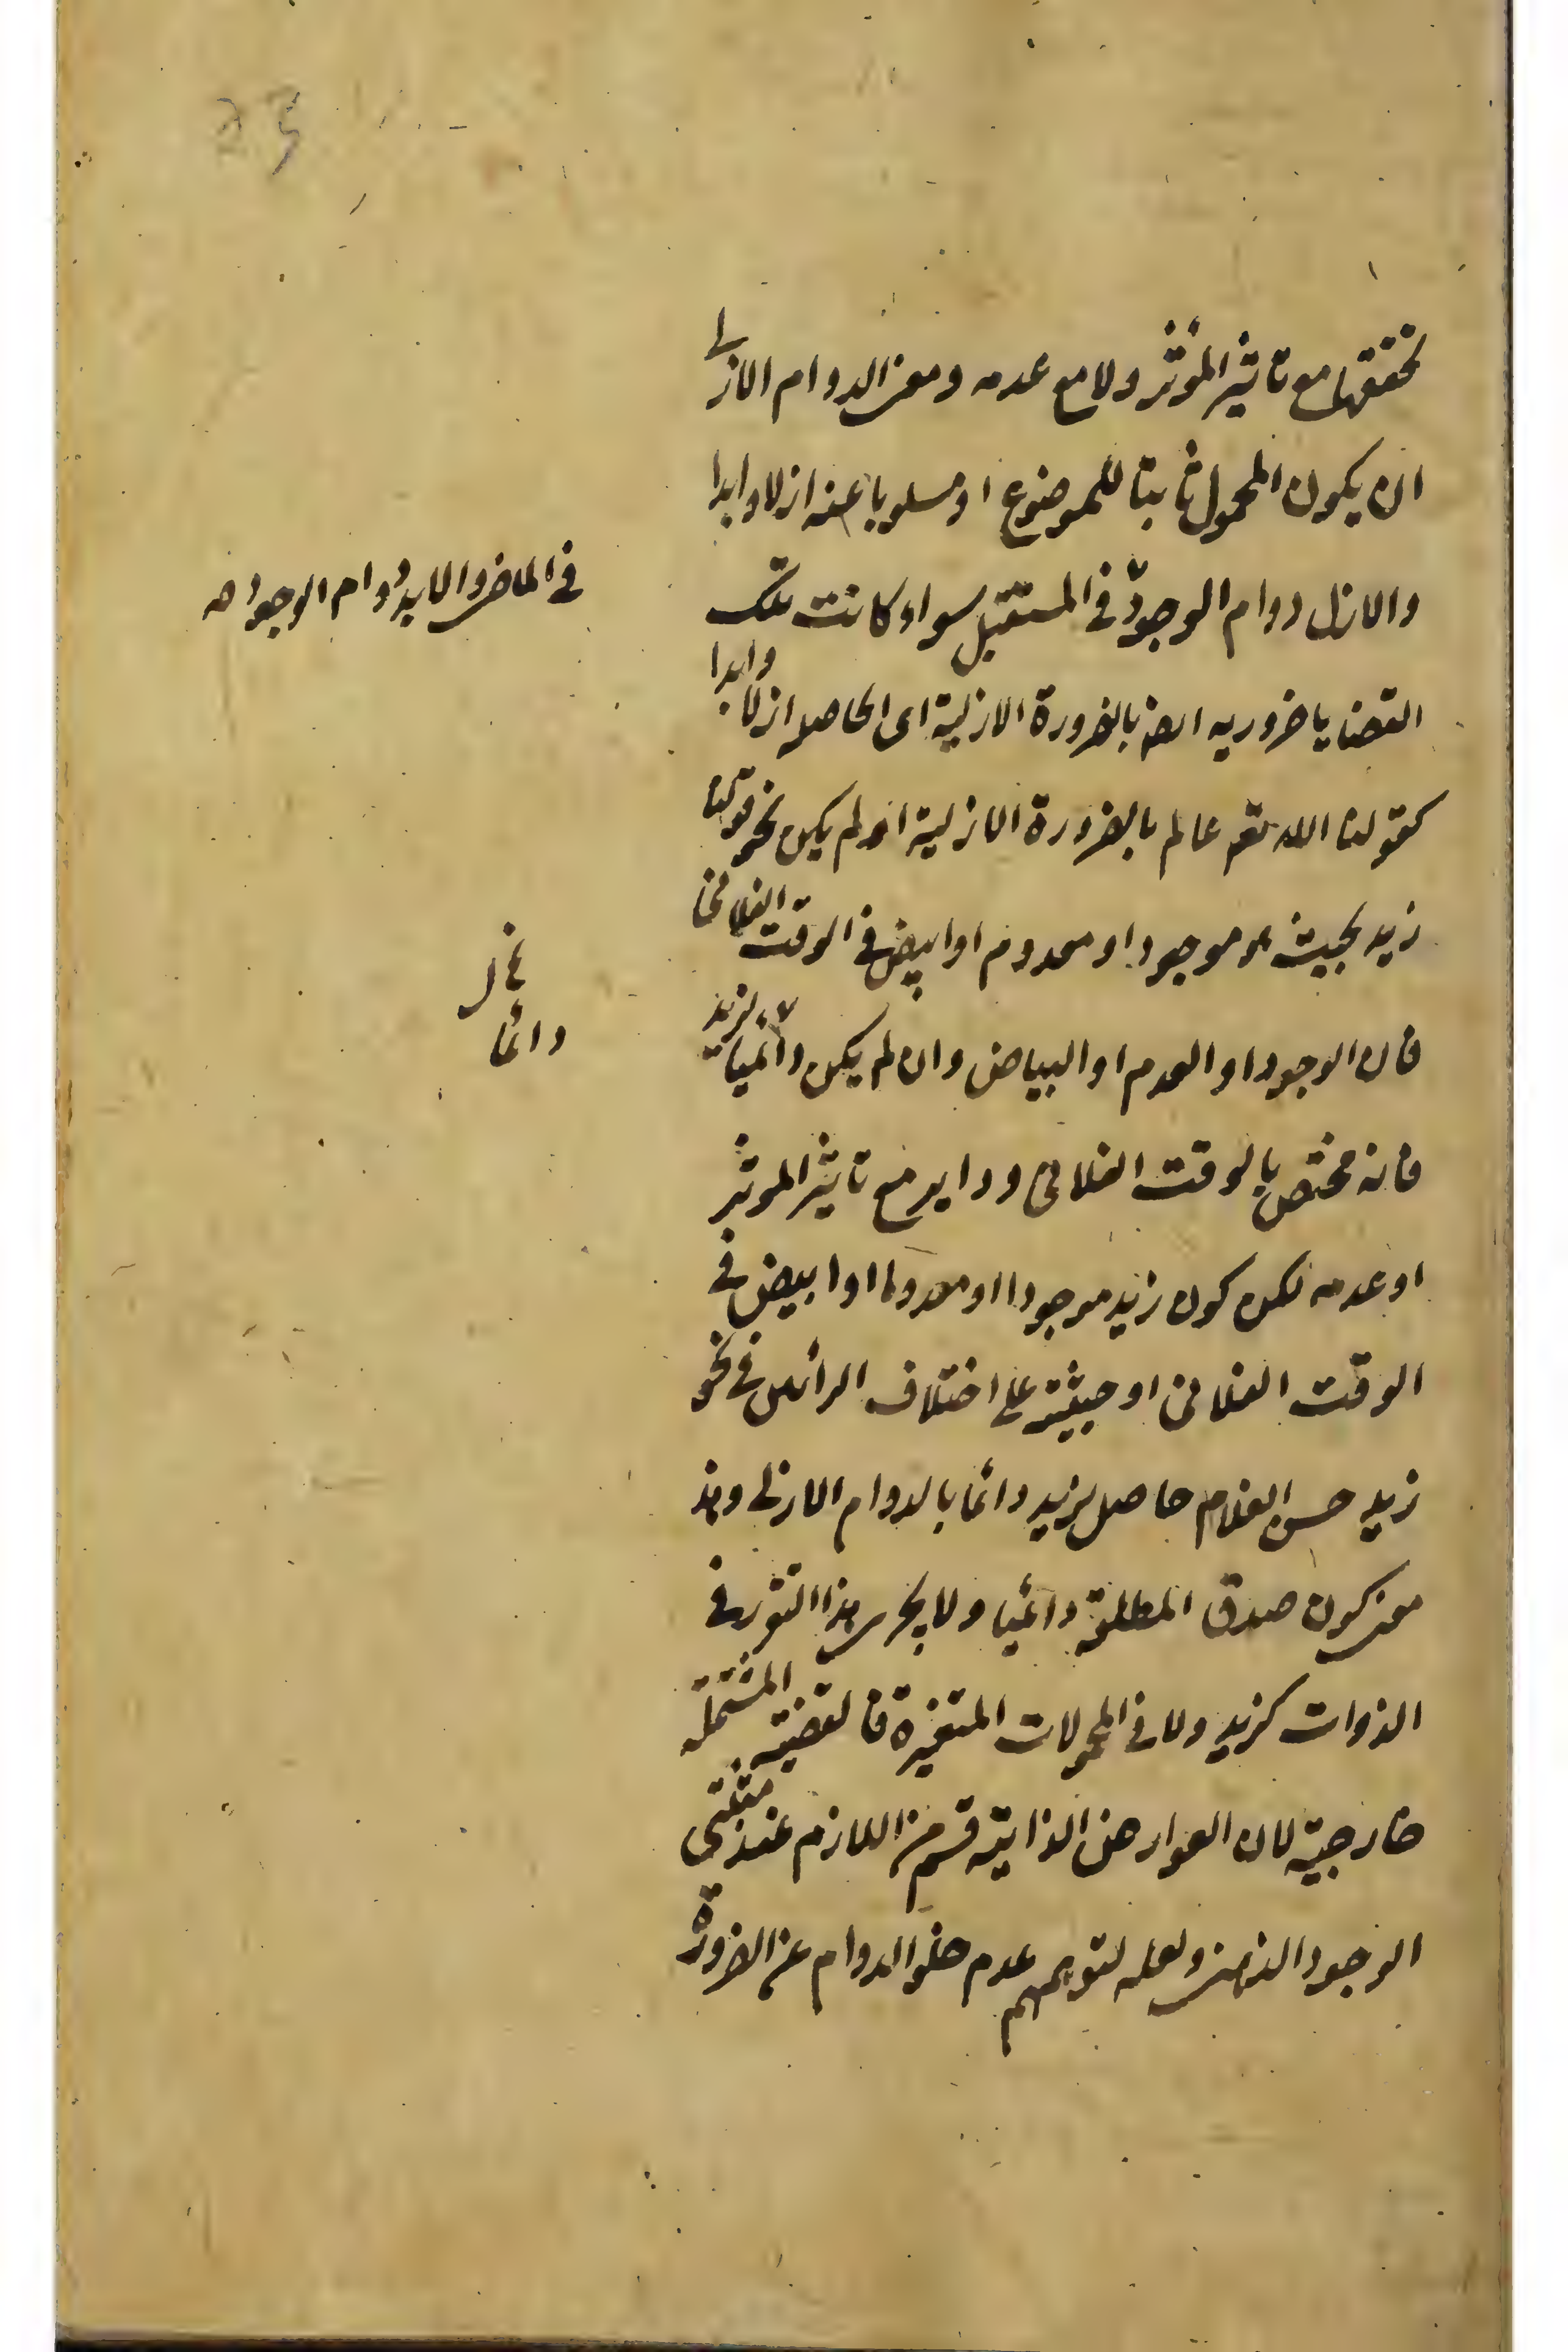 تحققها مع تاثير المؤثر ولا مع عدمه ومعنى الدوام الازلى
ان يكون المحمول ثابتا للموضوع او مسلوبا عنه ازلا وابدا
والازل دوام الوجود فى المستقبل سواء كانت تلك
فى الماضى والابد دوام الوجود صح
القضايا ضروريه ايضا بالضرورة الازلية اى الحاصله ازلا وابدا
كقولنا الله تعم عالم بالضرورة الازلية او لم يكن نحو قولنا
زيد بحيث هو موجود او معدوم او ابيض فى الوقت الفلانى
فان الوجود او العدم او البياض وان لم يكن دائميا لزيد
دائما
فانه مختص بالوقت الفلانى وداير مع تاثير الموثر
او عدمه لكن كون زيد موجودا او معدوما او ابيض فى
الوقت الفلانى او حيثية على اختلاف الرأيين فى نحو
زيد حسن الغلام حاصل لزيد دائما بالدوام الازلى وهذا
معنى كون صدق المطلقة دائميا ولا يجرى هذا فى
الذوات كزيد ولا فى المحمولات المتغيرة فالقضية المشتملة
خارجية لان العوارض الذاتية قسم من اللازم عند مثبتى
الوجود الذهنى ولعله لتوهم عدم خلو الدوام عن الضرورة